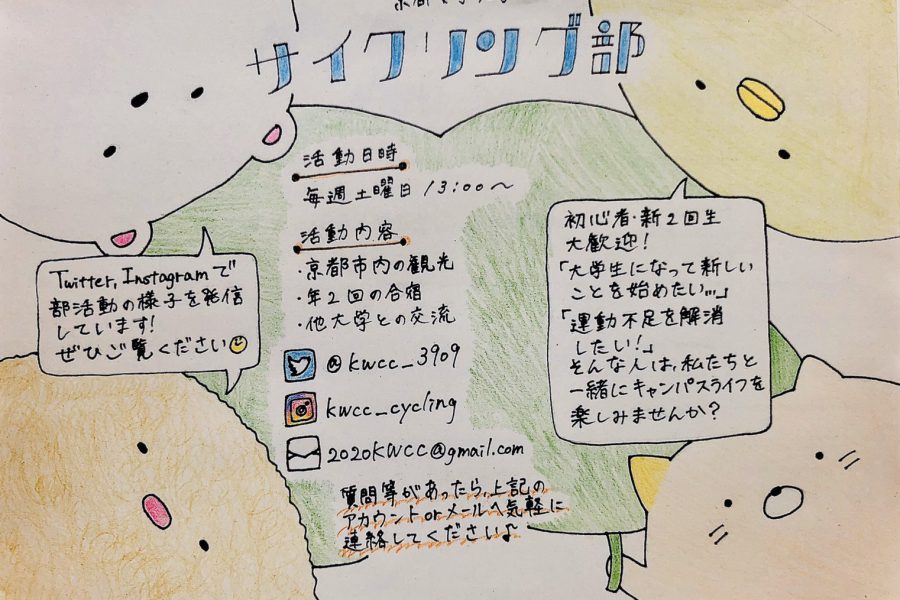 サイクリング部
活動日時
毎週土曜日 13:00〜
活動内容
・京都市内の観光
・年2回の合宿
・他大学との交流
@kwcc_3909
kwcc_cycling
2020KWCC@gmail.com
質問等があったら、上記の
アカウントorメールへ気軽に
連絡してください♪
Twitter, Instagramで
部活動の様子を発信
しています!
ぜひご覧ください
初心者・新2回生
大歓迎!
「大学生になって新しい
ことを始めたい...」
「運動不足を解消
したい!」
そんな人は、私たちと
一緒にキャンパスライフを
楽しみませんか?